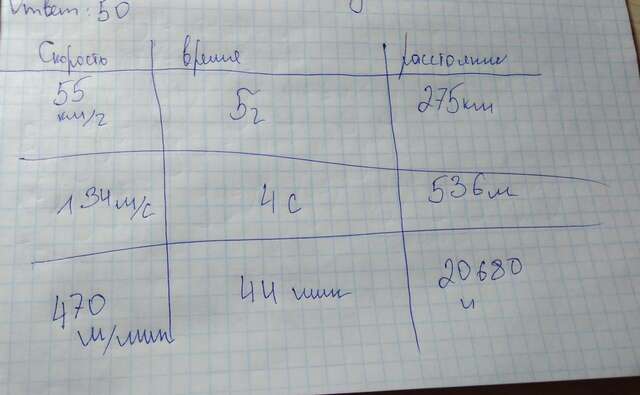 Ответ: 50
Скорость время расстояние
55 км/г 5г 275км
134м/с 4 с 536м
470 м/мин 44 мин 20680 м